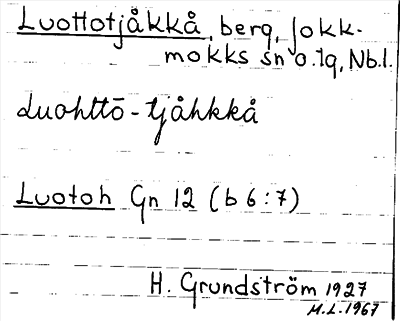 Luottotjåkkå, berg, Jokk-
mokks sn o. lq, Nb.l.
Luohttō-tjåhkkå
Luotoh Gn 12 (b 6:7)
H. Grundström 1927
M.L. 1967